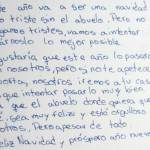 de año va a ser una navidad
triste sin el abuelo. Pero no
gamos tristes, vamos a intentar
árnoslo lo mejor posible.
gustaría que este año lo pasara
nosotros, pero si note apetece
nosotros iremos alv cas
que intentar pasarlo muy bien
que el abuelo donde quiera que
sea muy feliz y esté orgulloso
otros. Pero apesar de todo
Feliz Navidad y próspero año nuevo